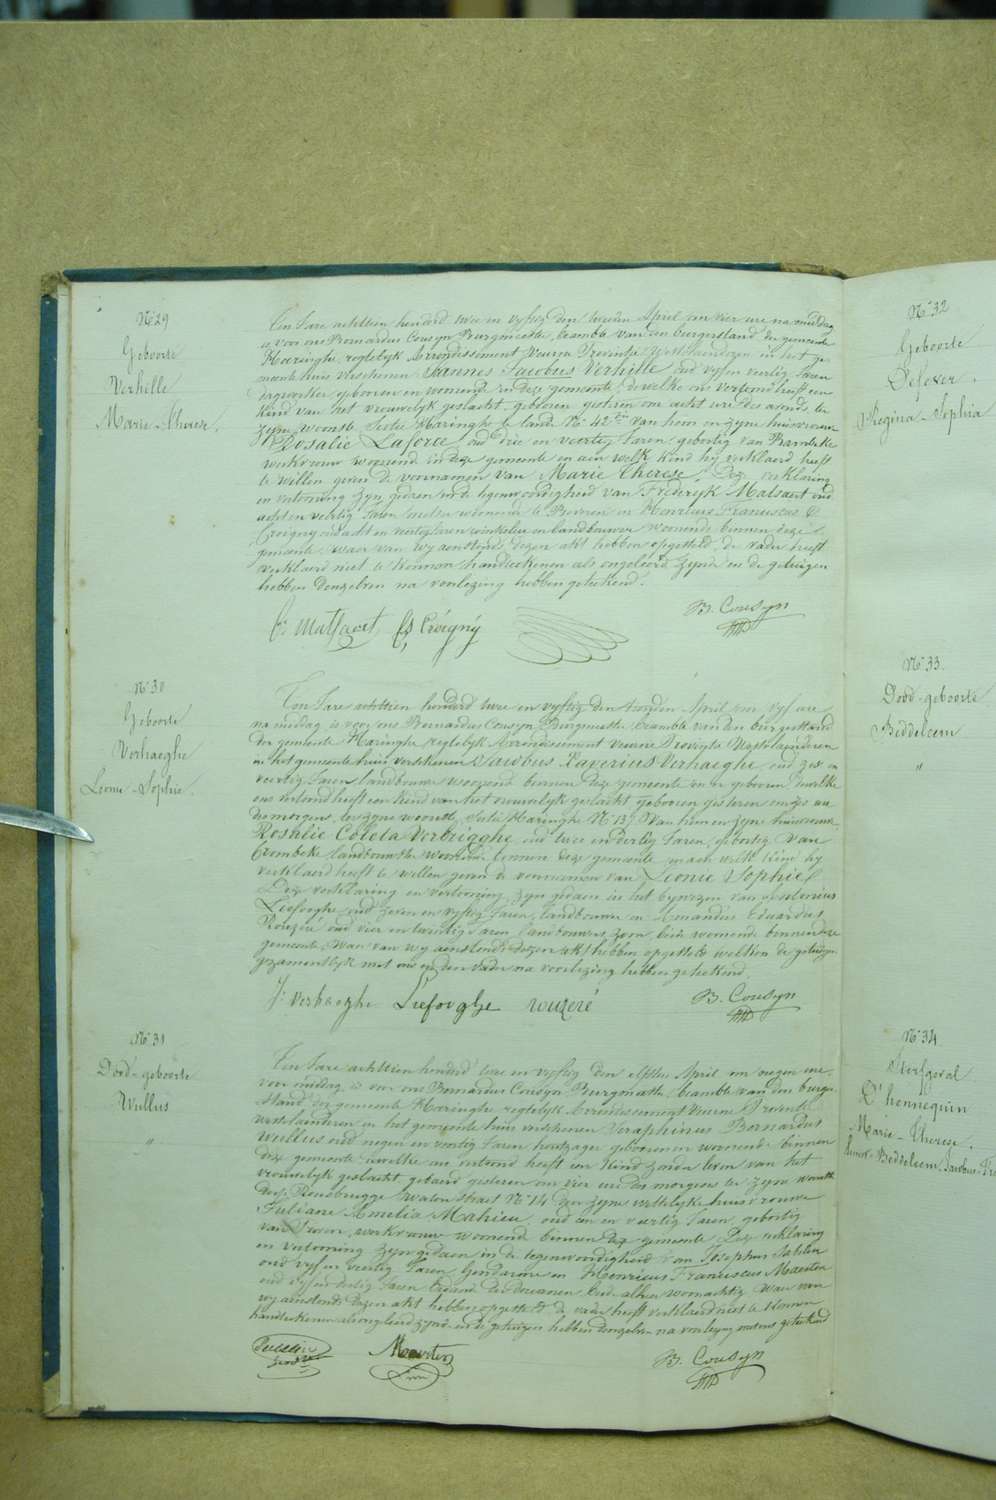 N.º 29
Geboorte
Verhille
Marie-Therese.
Ten Jare achttien honderd twee en vyftig den tweeden April om vier ure na middag
is voor ons Bernardus Cousyn Burgmeester, beambte van den burgerstand der gemeente
Haringhe, regtelyk Arrondissement Veurne Provintie Westvlaenderen in het ge-
meente huis verschenen Joannes Jacobus Verhille oud vyf en veertig Jaren
dagwerker geboren en woonende in deze gemeente, dewelke ons vertoond heeft een
kind van het vrouwelyk geslacht, geboren gisteren om acht ure des avonds, ten
zynen woonste Sectie Haringhe te lande N.º 42 van hem en zyne huisvrouw
Rosalie Laforce oud drie en veertig Jaren geboortig van
werkvrouw woonende in deze gemeente en aen welk kind hy verklaerd heeft
te willen geven de voornamen van Marie Therese. Deze verklaring
en vertooning zyn gedaen in de tegenwoordigheid van Frederyk Matsaert oud
acht en veertig Jaren woonende te en Henricus Franciscus
Croigny oud acht en veertig Jaren winkelier en landbouwer woonende binnen deze
gemeente, waer van wy aenstonds dezen akt hebben opgesteld de vader heeft
verklaerd niet te kunnen handteekenen als ongeleerd zynde en de getuigen
hebben denzelven na voorlezing hebben geteekend.
Matsaert Croigny B. Cousyn
N.º 30
Geboorte
Verhaeghe
Leonie-Sophie.
Ten Jare achttien honderd twee en vyftig den April om vyf ure
na middag is voor ons Bernardus Cousyn Burgmeester beambte van den burgerstand
der gemeente Haringhe regtelyk Arrondissement Veurne Provintie Westvlaenderen
in het gemeente huis verschenen Jacobus Xaverius Verhaeghe oud zes en
veertig Jaren landbouwer woonende binnen deze gemeente en er geboren welke
ons vertoond heeft een kind van het vrouwelyk geslacht geboren gisteren om zes ure
des morgens, ten zyne woonste, Sectie Haringhe N.º 13, van hem en zyne huisvrouw
Rosalie Coleta Verbrigghe oud twee en dertig Jaren, geboortig van
Crombeke landbouwster woonende binnen deze gemeente en aen welk kind hy
verklaerd heeft te willen geven de voornamen van Leonie Sophie.
Deze verklaring en vertooning zyn gedaen in het bywezen van
Liefooghe oud zeven en vyftig Jaren landbouwer en Amandus Eduardus
Rouzeré oud vier en twintig Jaren landbouwers zoon beide woonende binnen deze
gemeente, Waer van wy aenstonds dezen akt hebben opgesteld welken de getuigen
gezamentlyk met ons en den vader na voorlezing hebben geteekend.
J: Verhaeghe Liefooghe rouzeré B. Cousyn
N.º 31
Dood-geboorte
Wullus
"
Ten Jare achttien honderd twee en vyftig den elfsten April om negen ure
voor middag is voor ons Bernardus Cousyn Burgmeester, beambte van den burger
stand der gemeente Haringhe regtelyk Arrondissement Veurne Provintie
westvlaenderen in het gemeente huis verschenen Seraphinus Bernardus
Wullus oud negen en veertig Jaren houtzager geboren en woonende binnen
deze gemeente dewelke ons vertoond heeft een kind zonder leven van het
vrouwelyk geslacht gebaerd gisteren om vier ure des morgens te zyne woonste
dorp Rousbrugge Watou straet N.º 14 door zyne wettelyke huisvrouwe
Juliane Amelia Mahieu oud een en veertig Jaren, geboortig
van werkvrouw woonende binnen deze gemeente Deze verklaring
en vertooning zyn gedaen in de tegenwoordigheid van Josephus
oud vyf en veertig Jaren Gendarme en Henricus Franciscus Maerten
oud vyf en dertig Jaren der Douanen, beide alhier woonachtig Waer van
wy aenstonds dezen akt hebben opgesteld de vader heeft verklaerd niet te kunnen
handteekenen als ongeleerd zynde en de getuigen hebben denzelven na voorlezing met ons geteekend
Maerten B. Cousyn
N.º 32
Geboorte
Defever.
Regina-Sophia
N.º 33.
Dood-geboorte
Beddeleem
"
N.º 34.
Sterfgeval
D'hennequin
Marie-Therese.